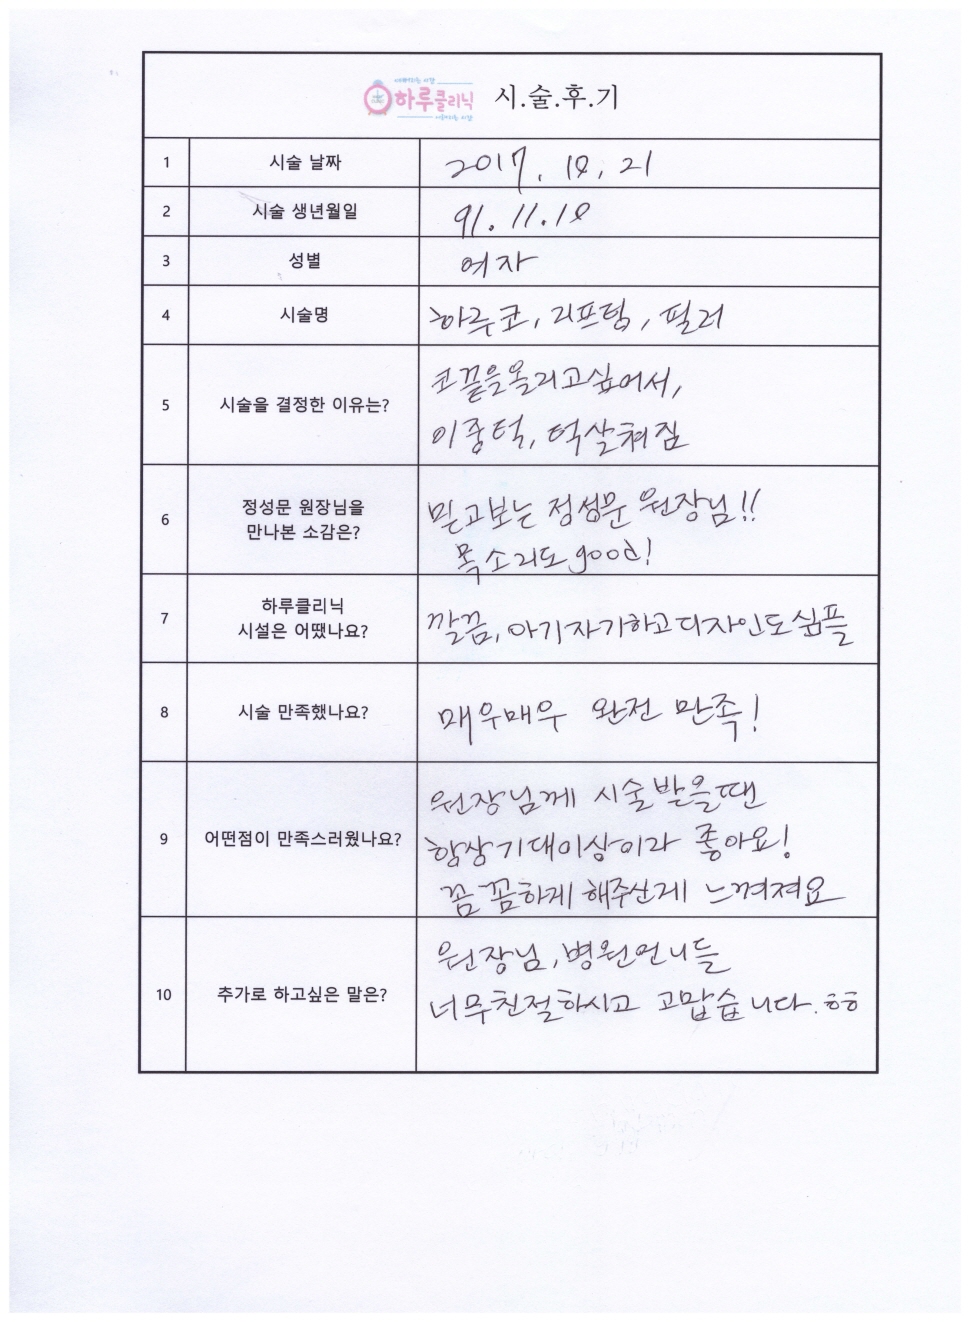 하루클리닉 시.술.후.기
1 시술 날짜 2017. 10. 21
2 시술 생년월일 91. 11. 10
3 성별 여자
4 시술명 하루코, 리프팅, 필러
5 시술을 결정한 이유는? 코끝을올리고싶어서,
이중턱, 턱살쳐짐
6 정성문 원장님을
만나본 소감은?
믿고보는 정성문 원장님!!
목소리도 good!
7 하루클리닉
시설은 어땠나요?
깔끔, 아기자기하고디자인도심플
8 시술 만족했나요? 매우매우 완전 만족!
9 어떤점이 만족스러웠나요? 원장님께 시술받을땐
항상기대이상이라 좋아요!
꼼꼼하게 해주신게 느껴져요
10 추가로 하고싶은 말은? 원장님, 병원언니들
너무친절하시고 고맙습니다. ㅎㅎ